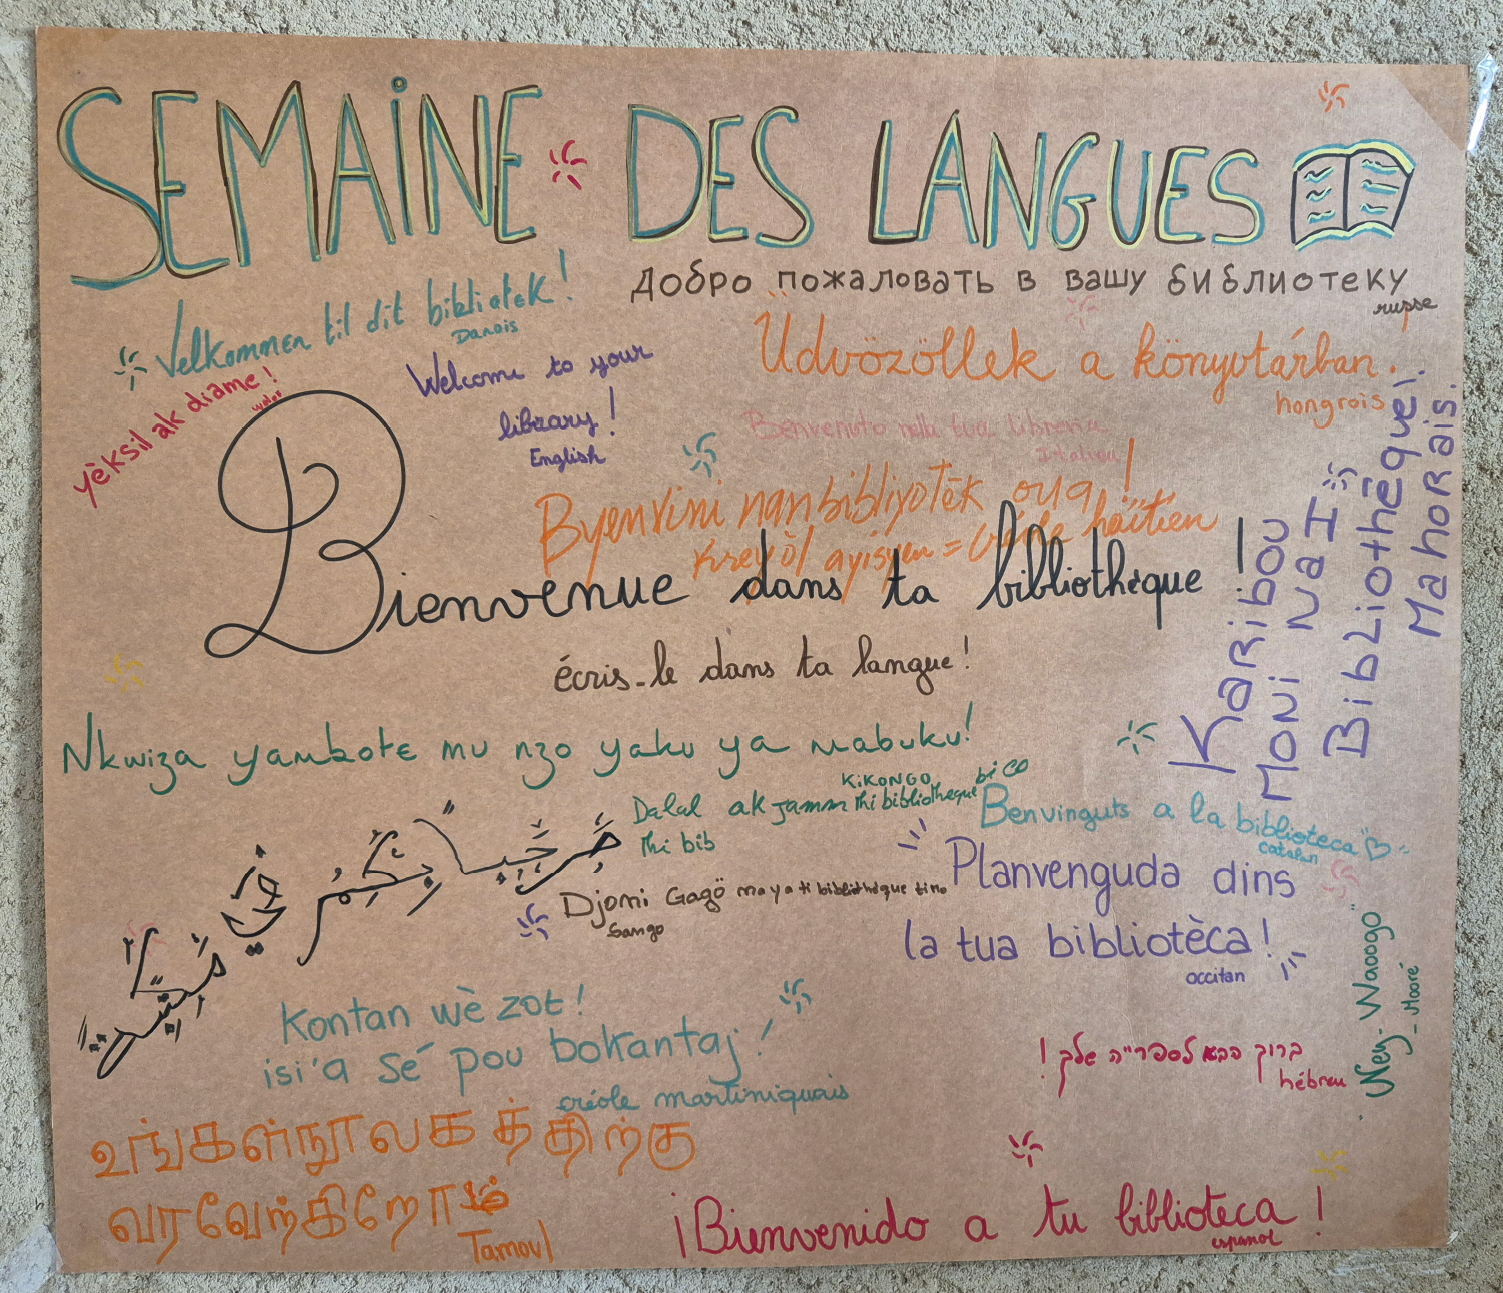 SEMAINE DES LANGUES
добро пожаловать в вашу библиотеку
russe
Velkommen til dit bibliotek!
Danois
Welcome to your
library!
English
Üdvözöllek a könyvtárban.
hongrois
yèksil ak diame!
wolof
Benvenuto nella tua libreria
Italien
Byenvini nan bibliyotèk ou a!
Kreyòl ayisyen = Créole haïtien
Bienvenue dans ta bibliothèque!
écris-le dans ta langue!
Karibou
Moni NaI
Bibliothèque!
Mahorais.
Nkwiza yambote mu nzo yaku ya mabuku!
KiKONGO
Dalal ak jamm thi bibliotheque bi CO
thi bib
Benvinguts a la biblioteca
catalan
مَرْحَبًا بِكُمْ فِي
Djoni Gagö na ya ti bibliothèque ti mo
Sango
Planvenguda dins
la tua bibliotèca!
occitan
Ney-Waoogo
Mooré
Kontan wè zot!
isi'a sé pou bokantaj!
créole martiniquais
ברוך הבא לספרייה שלך!
hébreu
உங்கள் நூலகத்திற்கு
வரவேற்கிறோம்
Tamoul
¡Bienvenido a tu biblioteca!
espanol